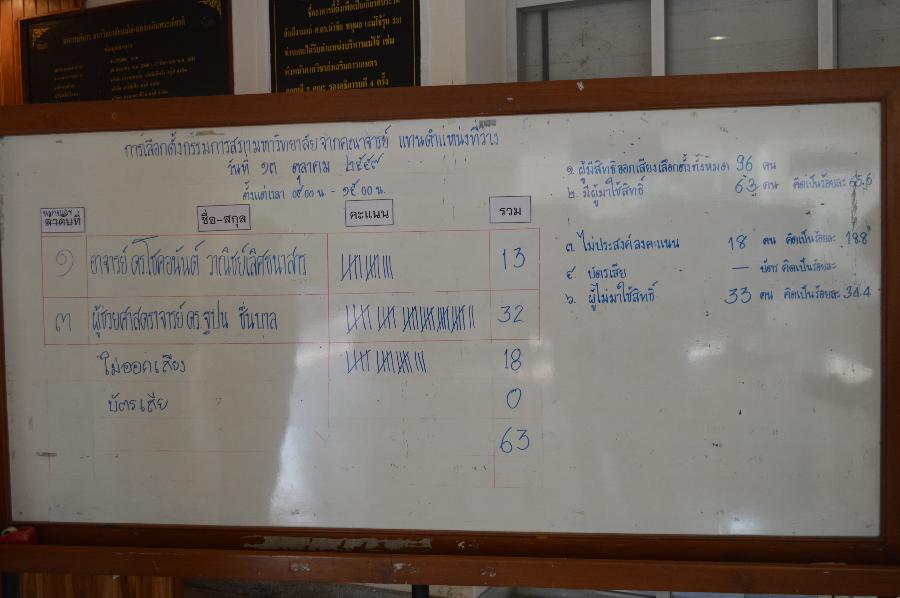 ซื้ออาคารนี้ขึ้นเพื่อเป็นเกียรติประวัติ
หัวหน้าภาควิชาส่งเสริมการเกษตร
การเลือกตั้งกรรมการสภามหาวิทยาลัยจากคณาจารย์ แทนตำแหน่งที่ว่าง
วันที่ ๑๓ ตุลาคม ๒๕๕๙
ตั้งแต่เวลา ๐๙.๐๐ น - ๑๕.๐๐ น.
หมายเลข ลำดับที่ ชื่อ-สกุล คะแนน รวม
๑ อาจารย์ ดร.โชคอนันต์ วาณิชย์เลิศธนาสาร 13
๓ ผู้ช่วยศาสตราจารย์ ดร. ฐปน ชื่นบาล 32
ไม่ออกเสียง 18
บัตรเสีย 0
63
๑. ผู้มีสิทธิออกเสียงเลือกตั้งทั้งหมด 96 คน
๒. มีผู้มาใช้สิทธิ์ 63 คน คิดเป็นร้อยละ 65.6
๓. ไม่ประสงค์ลงคะแนน 18 คน คิดเป็นร้อยละ 18.8
๔. บัตรเสีย — บัตร คิดเป็นร้อยละ
๖. ผู้ไม่มาใช้สิทธิ์ 33 คน คิดเป็นร้อยละ 34.4